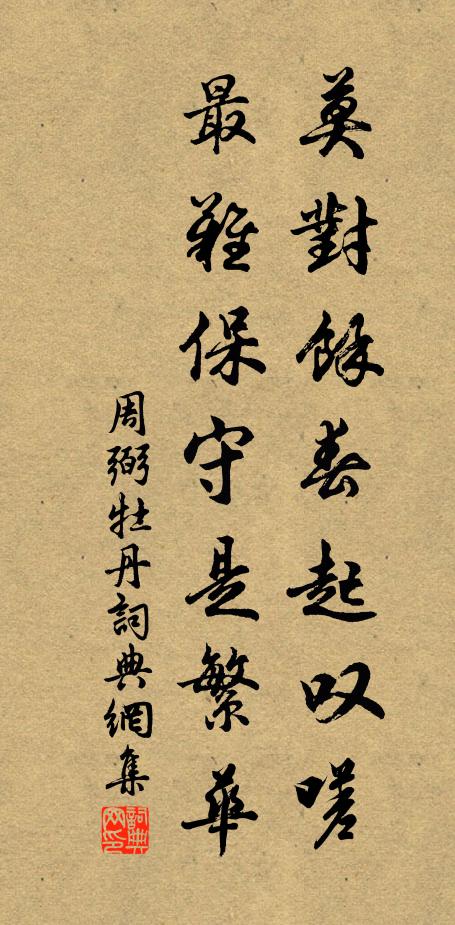 莫對餘春起叹嗟
最難保守是繁華
周弼牡丹詞典網集
詞典网印